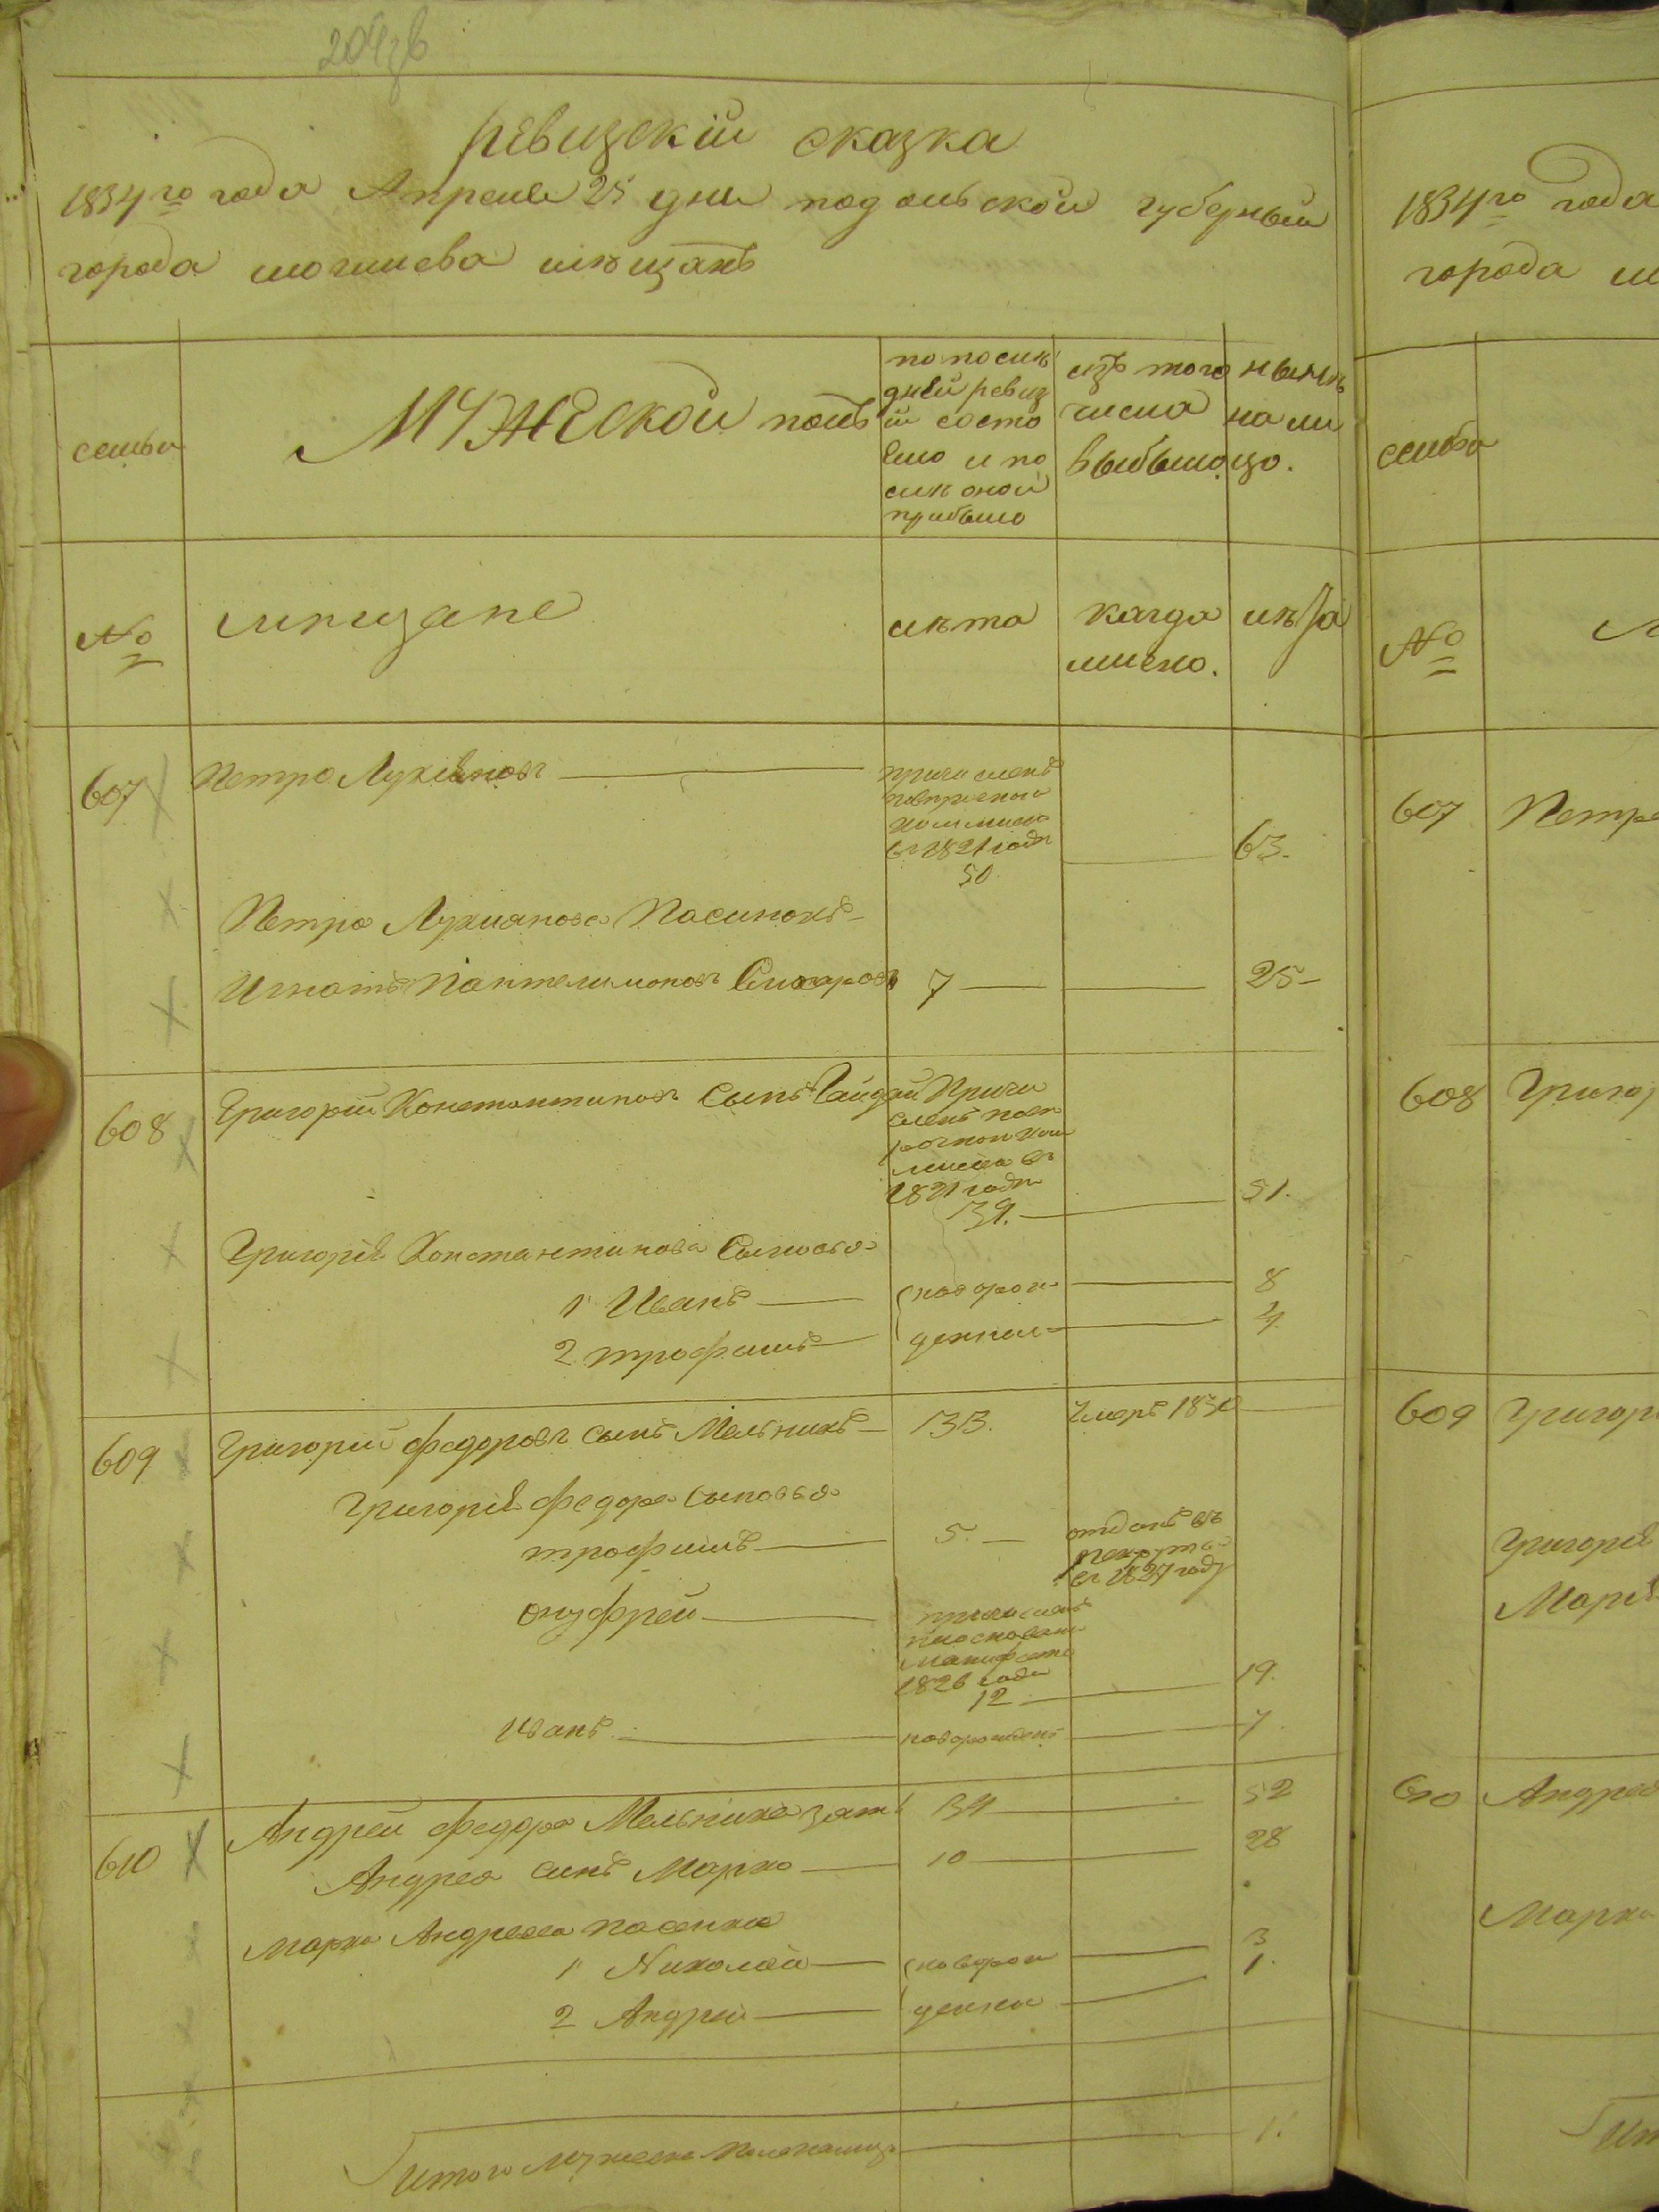 204зв
ревизскіи сказка
1834го года Апреля 25 дня подольской губерныи
города могилева мѣщанъ
семьи
МУЖЕСКОИ полъ
по послѣ
дней ревиз
іи состо
яло и по
слѣ оной
прибыло
изъ того
числа
выбыло
нынѣ
на ли
цо.
№
мѣщане
лѣта
когда
имено.
лѣта
607
Петро Лукіяновъ
причисленъ
в 1821 годе
50
63.
Петра Лукианова Пасинокъ
Игнатъ Пантелимоновъ
7
25
608
Григорій Константиновъ Сынъ Гайдай
Причи
сленъ
1821 годе
39.
51.
Григорія Константинова Сыновья
1 Иванъ
новорож
8
2 трофимъ
денные
4
609
Григорий федоровъ сынъ Мельникъ
33.
Умеръ 1830
Григорія федора Сыновья
трофимъ
5.
отданъ въ
рекрута
в 1827 году
онуфрей
причисленъ
манифеста
1826 года
12
19.
Иванъ
новорожденъ
7
610
Андрей федора Мельника зять
34
52
Андрея синъ Марко
10
28
Марка Андреева пасенки
1 Николай
новорож
3
2 Андрей
денни
1.
Итого
1.
1834го года
города м
семья
№
607
Петра
608
Григор
609
Григорі
Григорія
Марія
610
Андрея
Марка
Ит